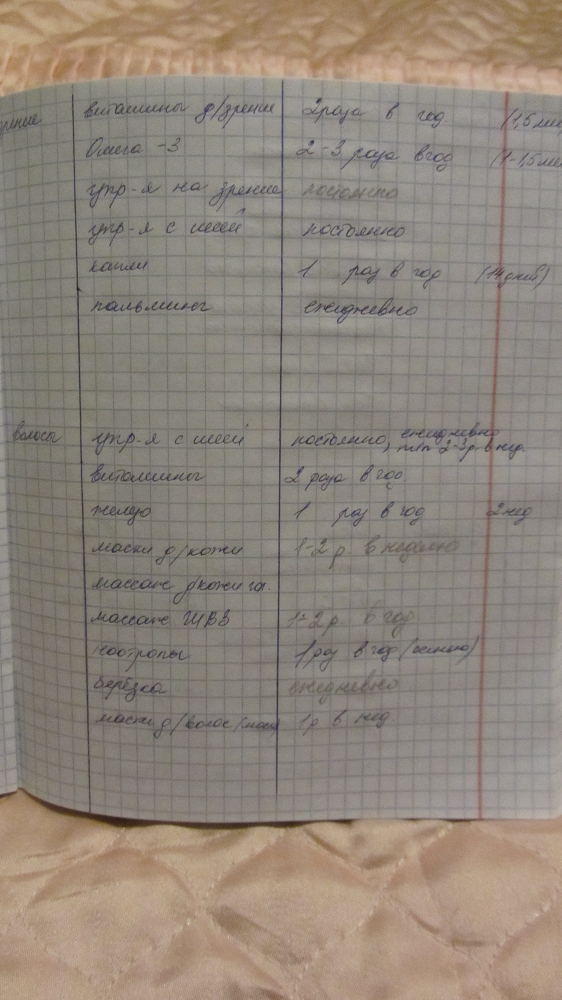 зрение витамины д/зрение 2 раза в год (1,5 мес
Омега-3 2-3 раза в год (1-1,5 мес
упр-я на зрение постоянно
упр-я с шеей постоянно
капли 1 раз в год (14 дней)
пальминг ежедневно
волосы упр-я с шеей постоянно, ежедневно
или 2-3 р в нед.
витамины 2 раза в год.
1 раз в год 2 нед
маски д/кожи 1-2 р. в неделю
массаж д/кожи гол.
массаж ШВЗ 1-2 р. в год
ноотропы 1 раз в год (осенью)
берёзка ежедневно
маски д/волос 1 р в нед.